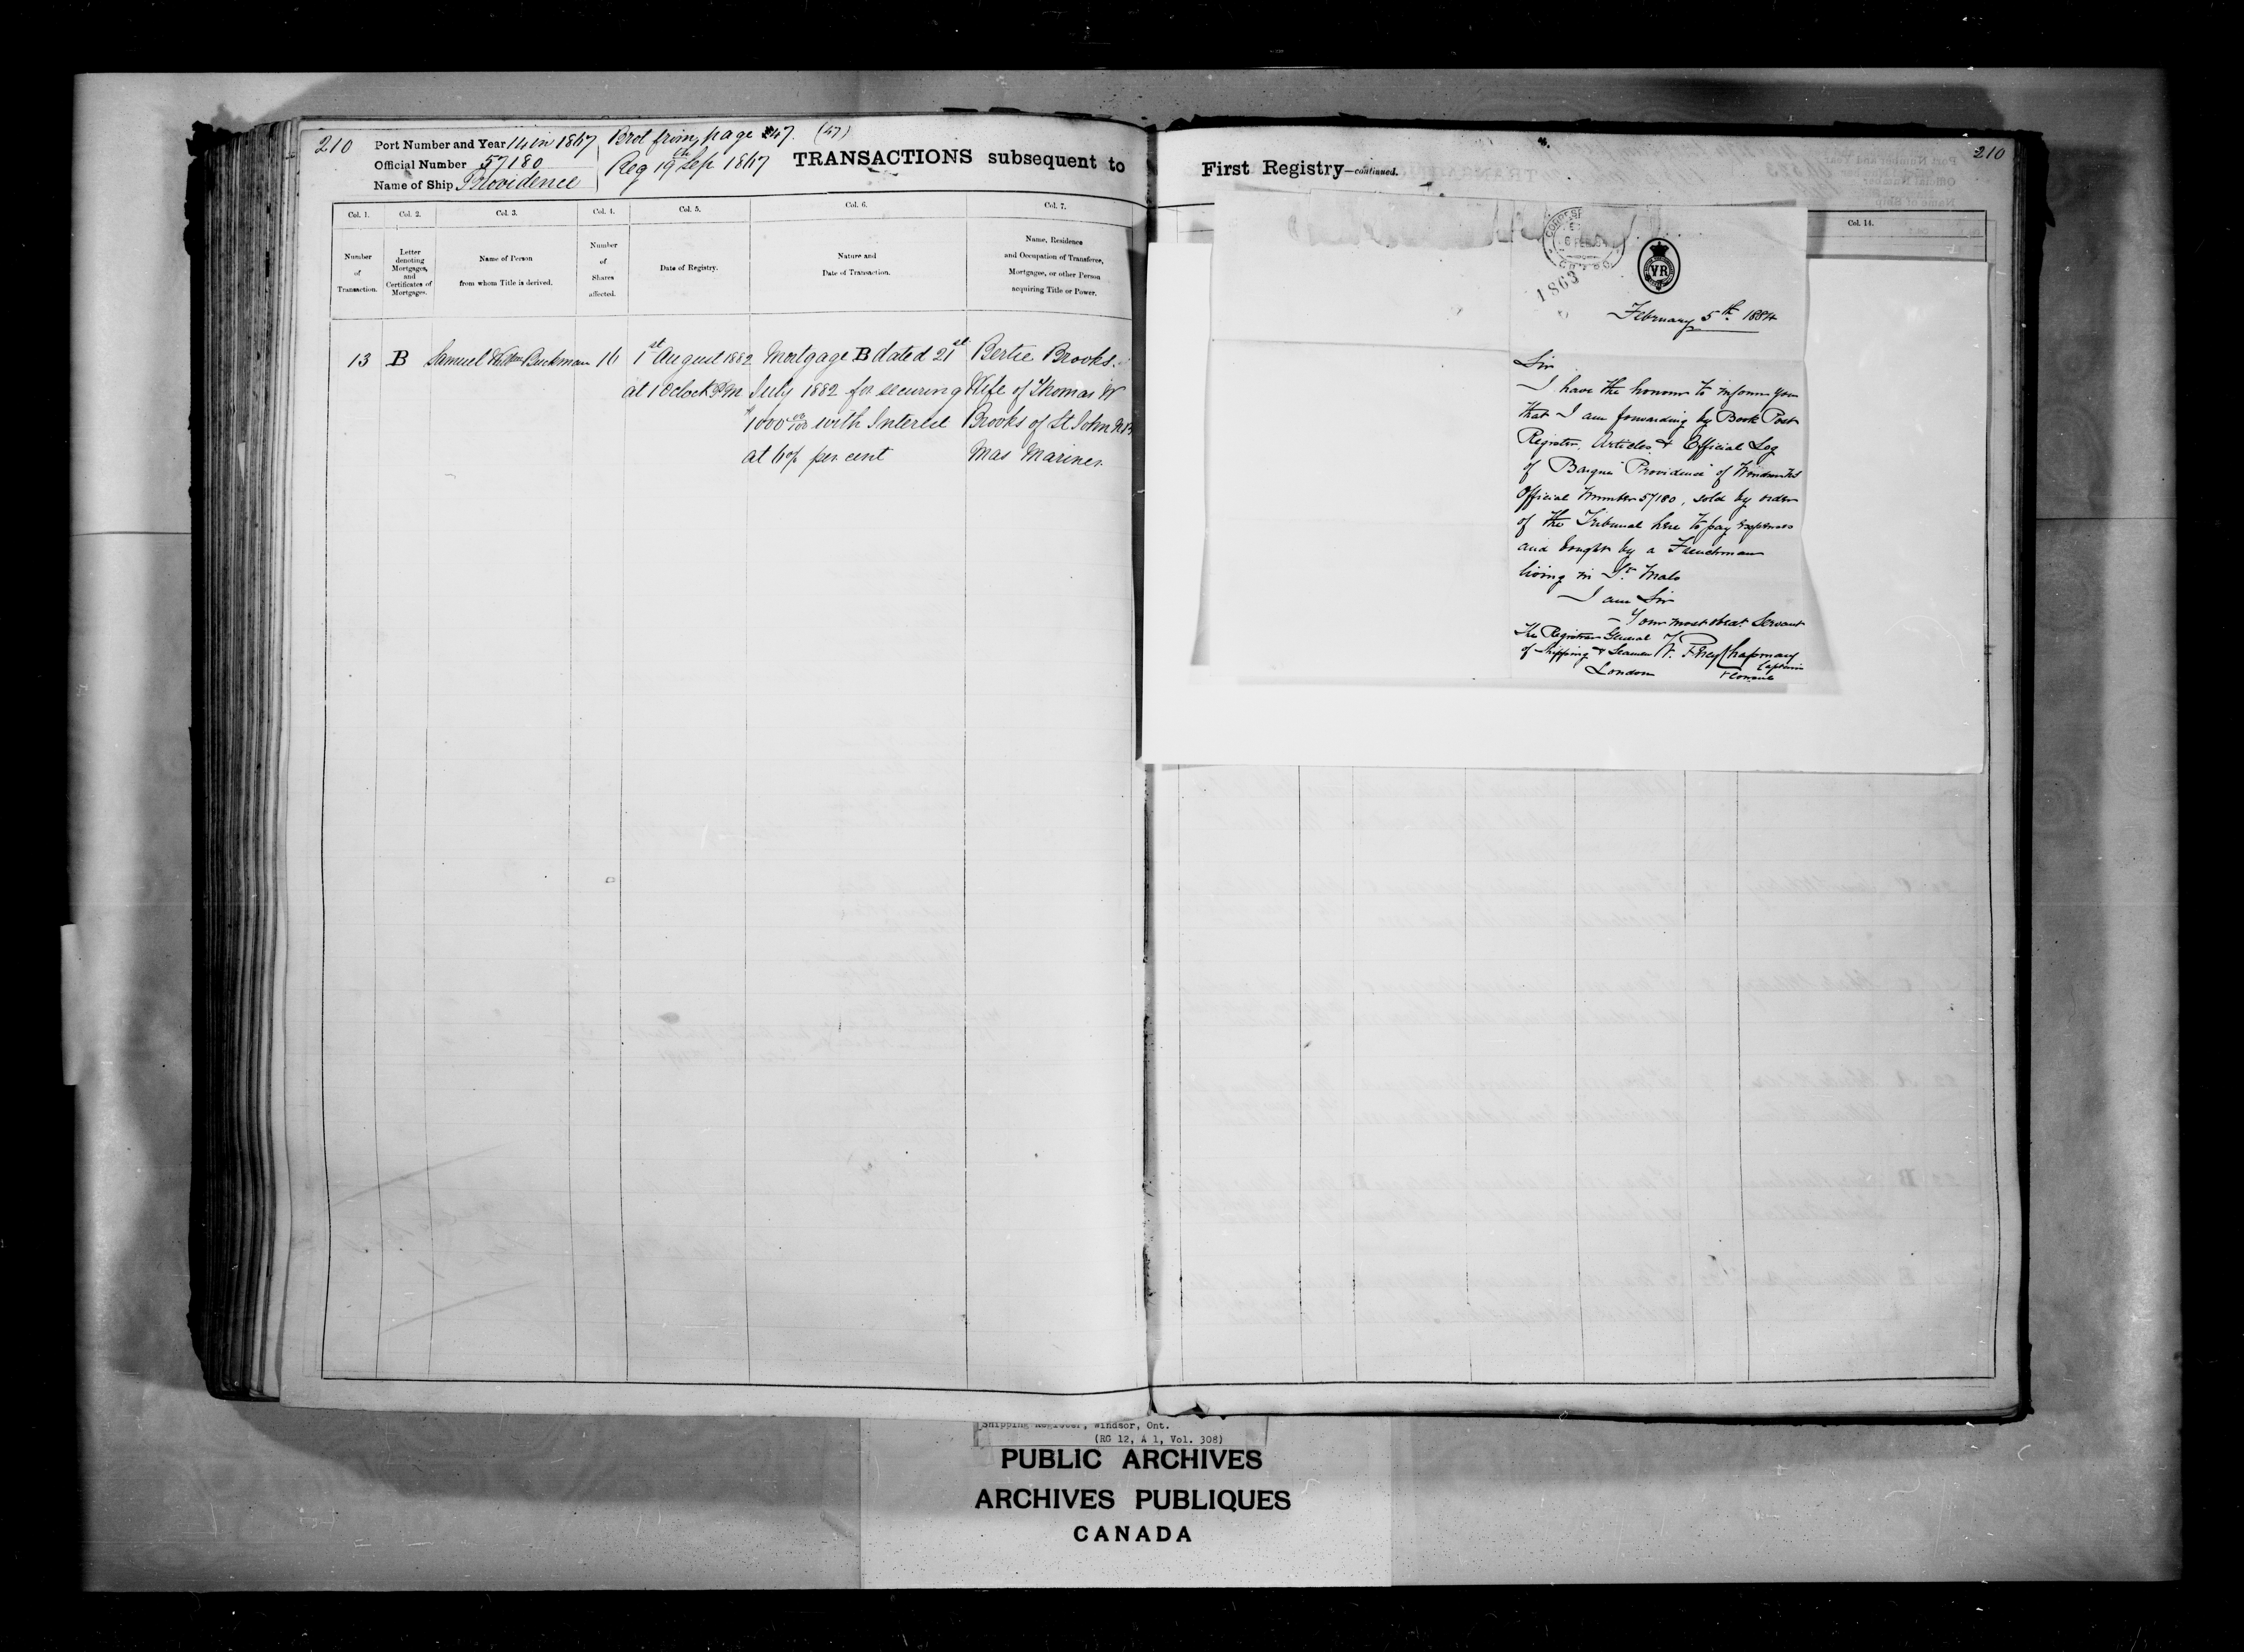 210 Port Number and Year 14 in 1867 Brot from page 47. (47)
Official Number 57180 Reg 19th Sep 1867
Name of Ship Providence
TRANSACTIONS subsequent to
Col. 1. Col. 2. Col. 3. Col. 4. Col. 5. Col. 6. Col. 7.
Number of Transaction.
Letter denoting Mortgages, and Certificates of Mortgages.
Name of Person from whom Title is derived.
Number of Shares affected.
Date of Registry.
Nature and Date of Transaction.
Name, Residence and Occupation of Transferee, Mortgagee, or other Person acquiring Title or Power.
13 B Samuel Buckman 16 1st August 1882 Mortgage B dated 21st Bertie Brooks.
at 1 Oclock PM July 1882 for securing Wife of Thomas W
1000 00/100 with Interest Brooks of St John NB
at 6% per cent Mas Mariner
First Registry—continued.
210
Col. 14.
6 FEB
1863
VR
February 5th. 1884
Sir
I have the honour to inform you
that I am forwarding by Book Post
Register, Articles & Official Log
of Barque "Providence" of Windsor NS
Official Number 57180, sold by order
of the Tribunal here to pay expenses
and bought by a Frenchman
living in St. Malo
I am Sir
Your most obedt. Servant
The Registrar General
of Shipping & Seamen
London
Chapman
Captain
& Consul
Shipping Register, Windsor, Ont.
(RG 12, A 1, Vol. 308)
PUBLIC ARCHIVES
ARCHIVES PUBLIQUES
CANADA